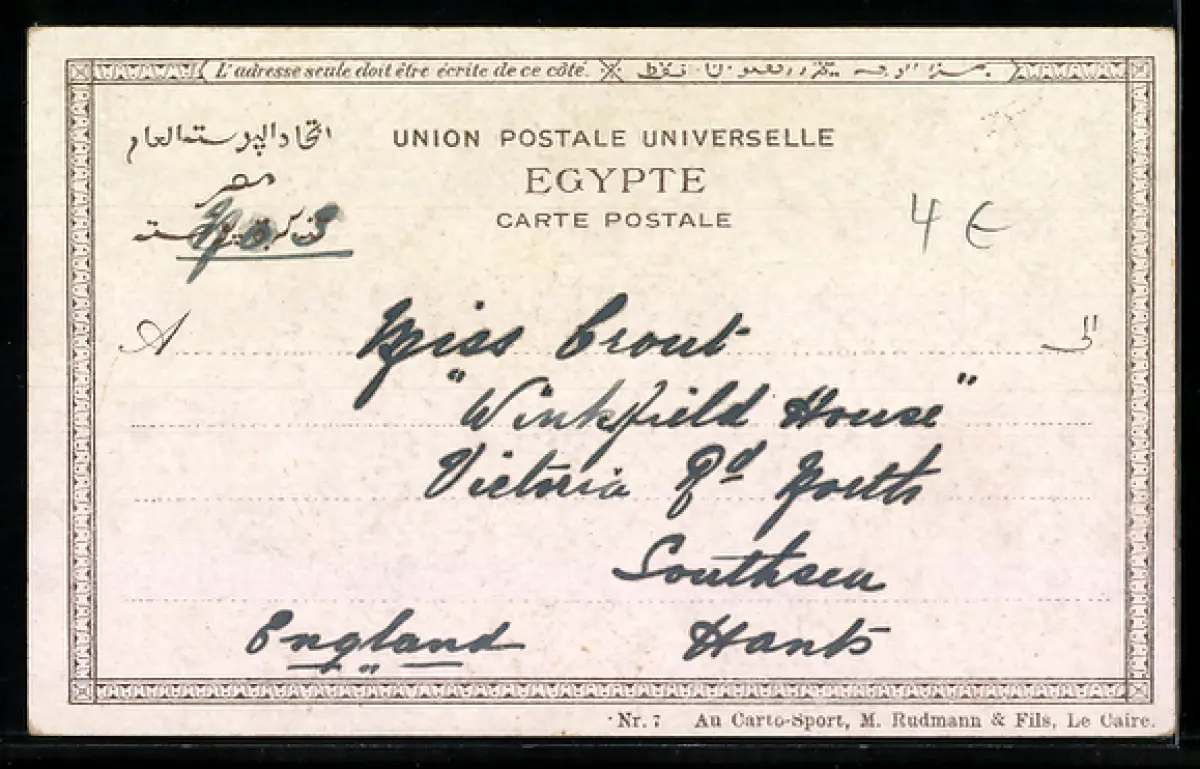 L'adresse seule doit être écrite de ce côté.
اتحاد البوسته العام
UNION POSTALE UNIVERSELLE
مصر
EGYPTE
CARTE POSTALE
No 3
4 €
A
الى
Miss Crout
"Winkfield House"
Victoria Rd North
Southsea
England Hants
Nr. 7 Au Carto-Sport, M. Rudmann & Fils, Le Caire.